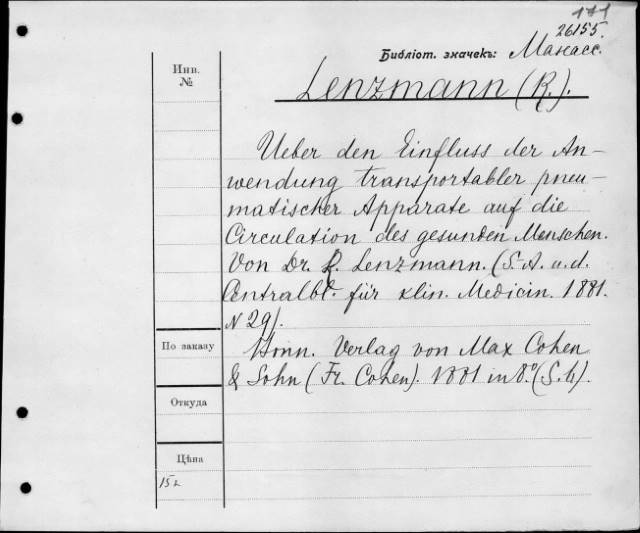 141
26155.
Библіот. значекъ: Манасс.
Инв.
№
Lenzmann (R.).
Ueber den Einfluss der An-
wendung transportabler pneu-
matischer Apparate auf die
Circulation des gesunden Menschen.
Von Dr. R. Lenzmann. (S.-A. a. d.
Centralbl. für klin. Medicin. 1881.
N 29).
По заказу
Bonn. Verlag von Max Cohen
& Sohn (Fr. Cohen). 1881 in 8.° (S. 6).
Откуда
Цѣна
15 к